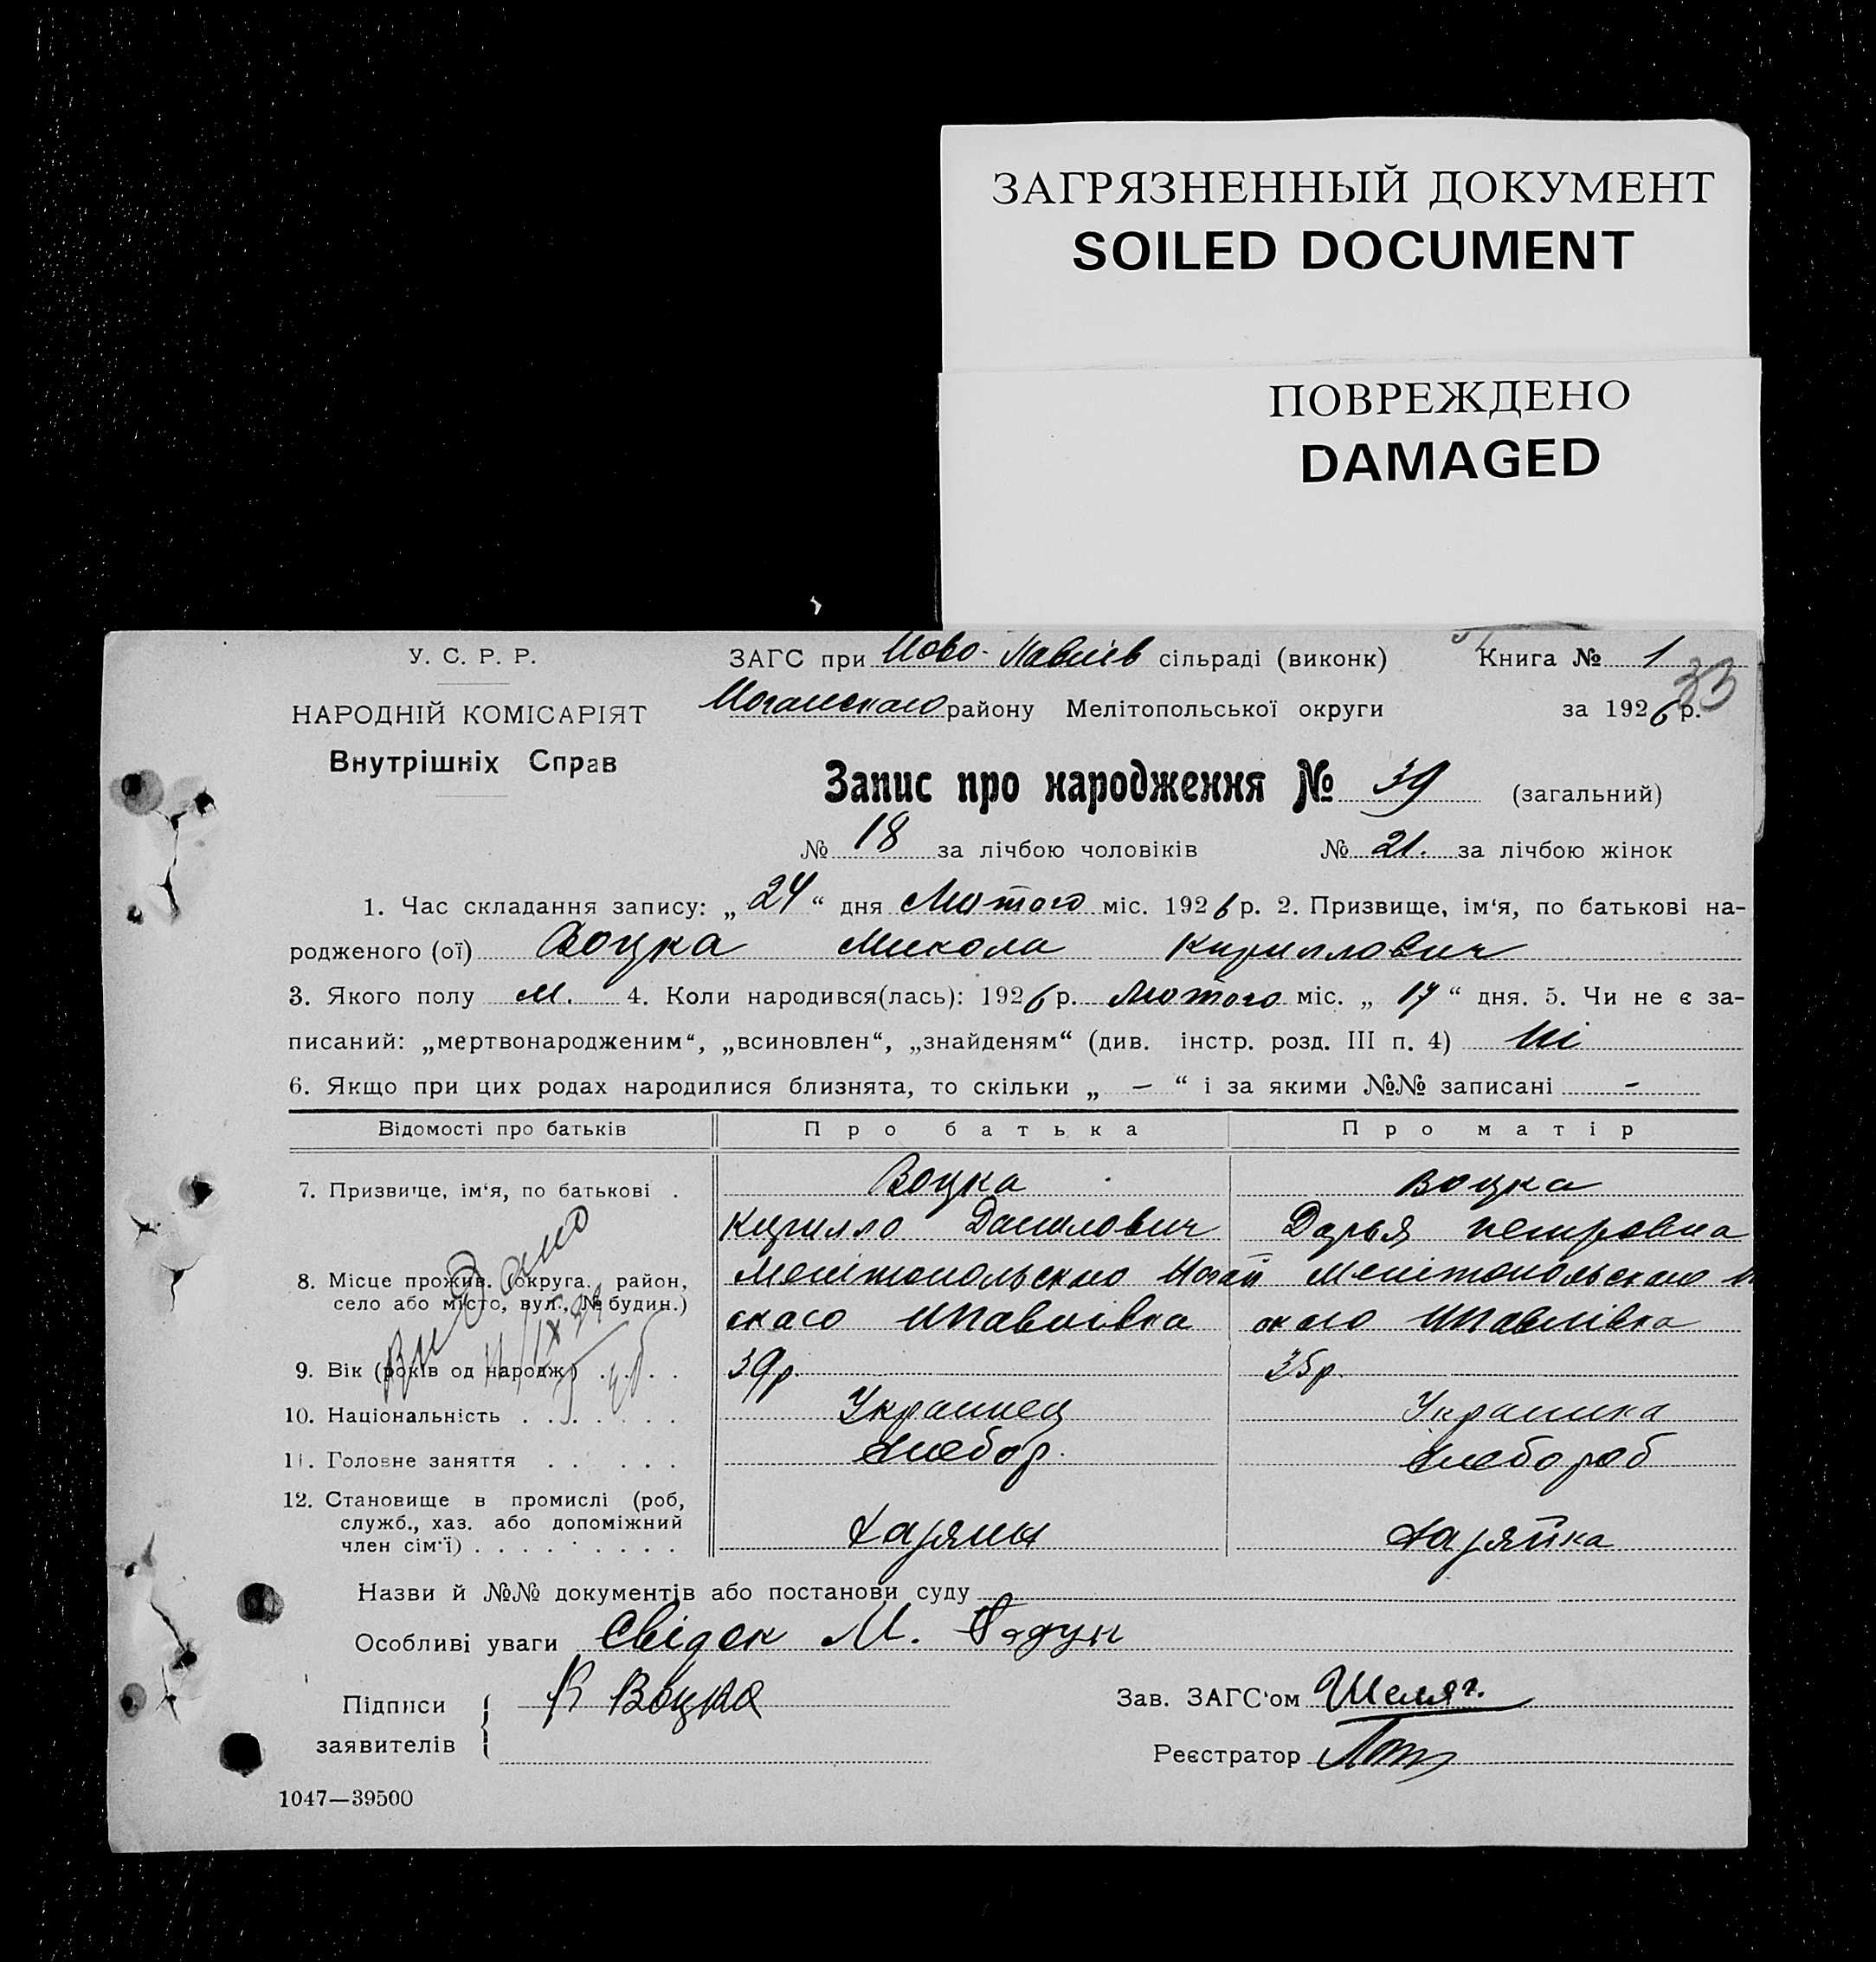 ЗАГРЯЗНЕННЫЙ ДОКУМЕНТ
SOILED DOCUMENT
ПОВРЕЖДЕНО
DAMAGED
У. С. Р. Р.
НАРОДНІЙ КОМІСАРІЯТ
Внутрішніх Справ
ЗАГС при Ново-Павлів сільраді (виконк) Книга № 1
33
району Мелітопольської округи за 1926 р.
Запис про народження № 39 (загальний)
№ 18 за лічбою чоловіків № 21. за лічбою жінок
1. Час складання запису: „24“ дня Лютого міс. 1926 р. 2. Призвище, ім‘я, по батькові на-
родженого (ої) Воцка Микола Кириллович
3. Якого полу М. 4. Коли народився(лась): 1926 р. Лютого міс. „17“ дня. 5. Чи не є за-
писаний: „мертвонародженим“, „всиновлен“, „знайденям“ (див. інстр. розд. III п. 4) Ні
6. Якщо при цих родах народилися близнята, то скільки „ – “ і за якими №№ записані –
Відомості про батьків Про батька Про матір
7. Призвище, ім‘я, по батькові . Воцка Воцка
Кирилло Данилович Дарья Петровна
8. Місце прожив. (округа, район, село або місто, вул., № будин.) Мелітопольского Ногай Мелітопольского Н
ского НПавлівка ского НПавлівка
Видано
9. Вік (років од народж) . . . . 39р. 35р.
10. Національність . . . . . . . Украинец Украинка
11. Головне заняття . . . . . . Хлебор. Хлебороб
12. Становище в промислі (роб, служб., хаз. або допоміжний член сім‘ї) . . . . . . . . . Хазяин Хазяйка
Назви й №№ документів або постанови суду
Особливі уваги Свідок М.
Підписи заявителів К Воцка
Зав. ЗАГС‘ом
Реєстратор
1047—39500